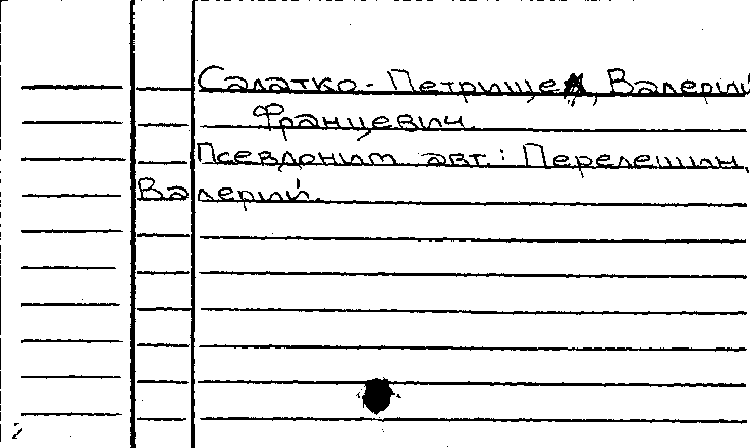 Салатко-Петрище, Валерий
Францевич.
Псевдоним авт.: Перелешин,
Валерий.